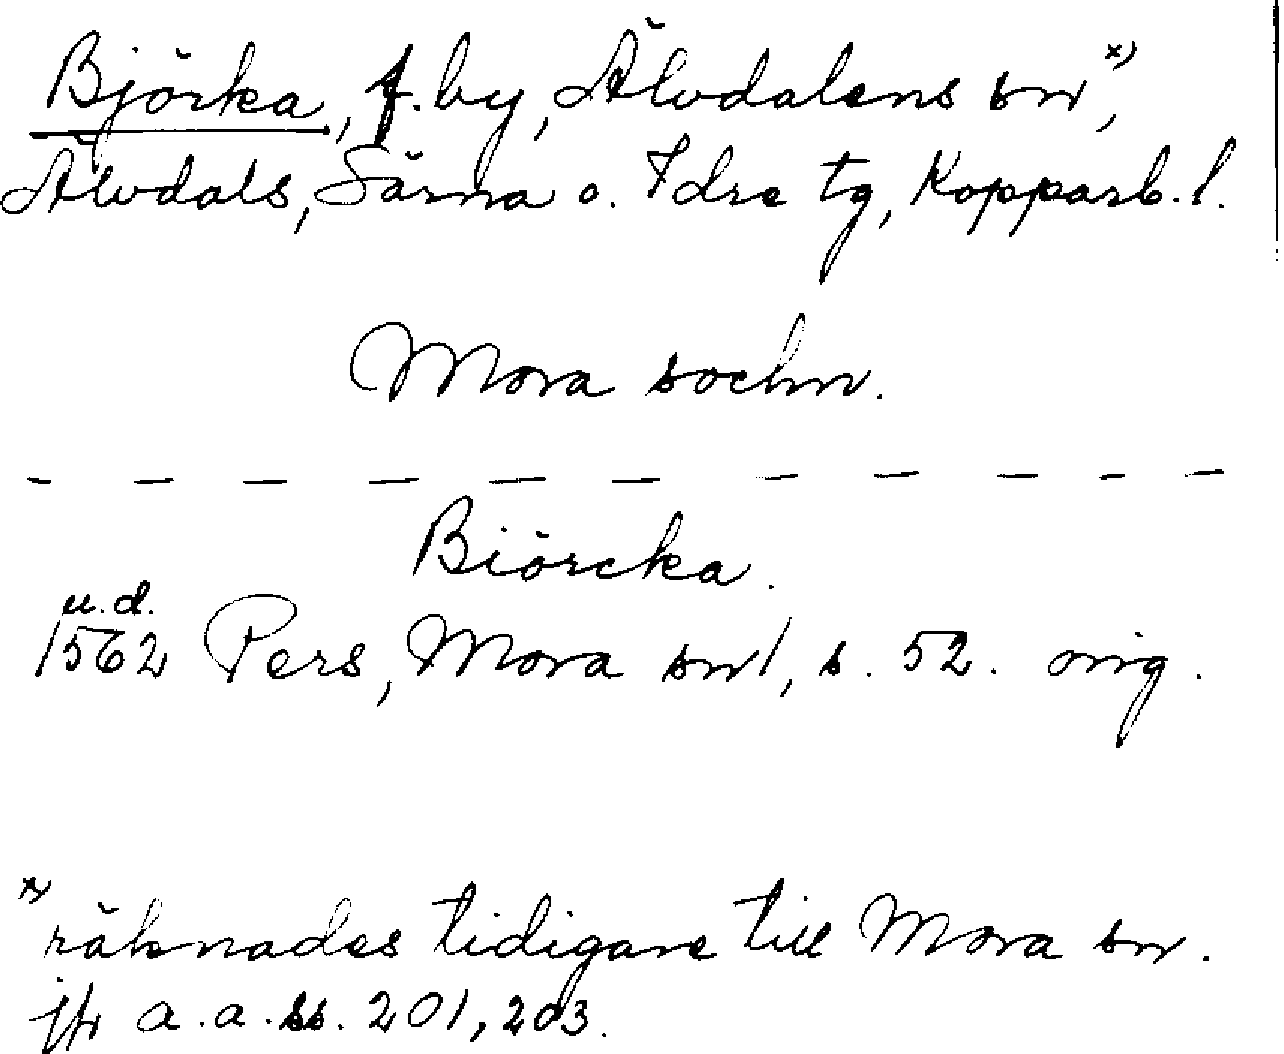 Björka, f. by, Älvdalens sn, x)
Älvdals, Särna o. Idre tg, Kopparb. l.
Mora sochn.
- - - - - - - - - - -
Biörcka.
u. d.
1562 Pers, Mora sn/, s. 52. orig.
x) räknades tidigare till Mora sn.
jfr a. a. ss. 201, 203.